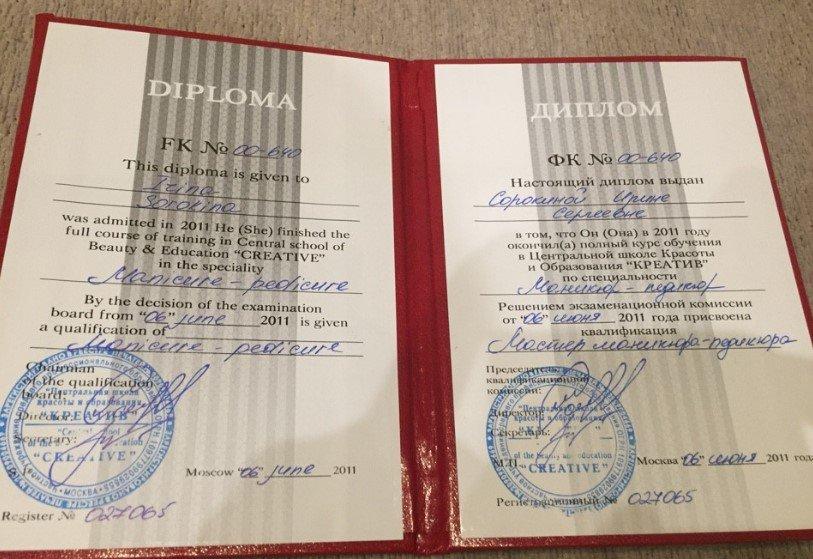 DIPLOMA
FK № 00-640
This diploma is given to
Irina
Sorokina
was admitted in 2011 He (She) finished the
full course of training in Central school of
Beauty & Education "CREATIVE"
in the speciality
Manicure - pedicure
By the decision of the examination
board from "06" june 2011 is given
a qualification of
Manicure - pedicure
Chairman
of the qualification
board:
Director:
Secretary:
"Центральная школа
красоты и образования
"КРЕАТИВ"
of the beauty and education
"CREATIVE"
МОСКВА
Moscow "06" june 2011
Register № 027065
ДИПЛОМ
ФК № 00-640
Настоящий диплом выдан
Сорокиной Ирине
Сергеевне
в том, что Он (Она) в 2011 году
окончил(а) полный курс обучения
в Центральной школе Красоты
и Образования "КРЕАТИВ"
по специальности
Маникюр - педикюр
Решением экзаменационной комиссии
от "06" июня 2011 года присвоена
квалификация
Мастер маникюра-педикюра
Председатель
квалификационной
комиссии:
Директор:
Секретарь:
"Центральная школа
красоты и образования
of the beauty and education
"CREATIVE"
М.П.
Москва "06" июня 2011 года
Регистрационный № 027065